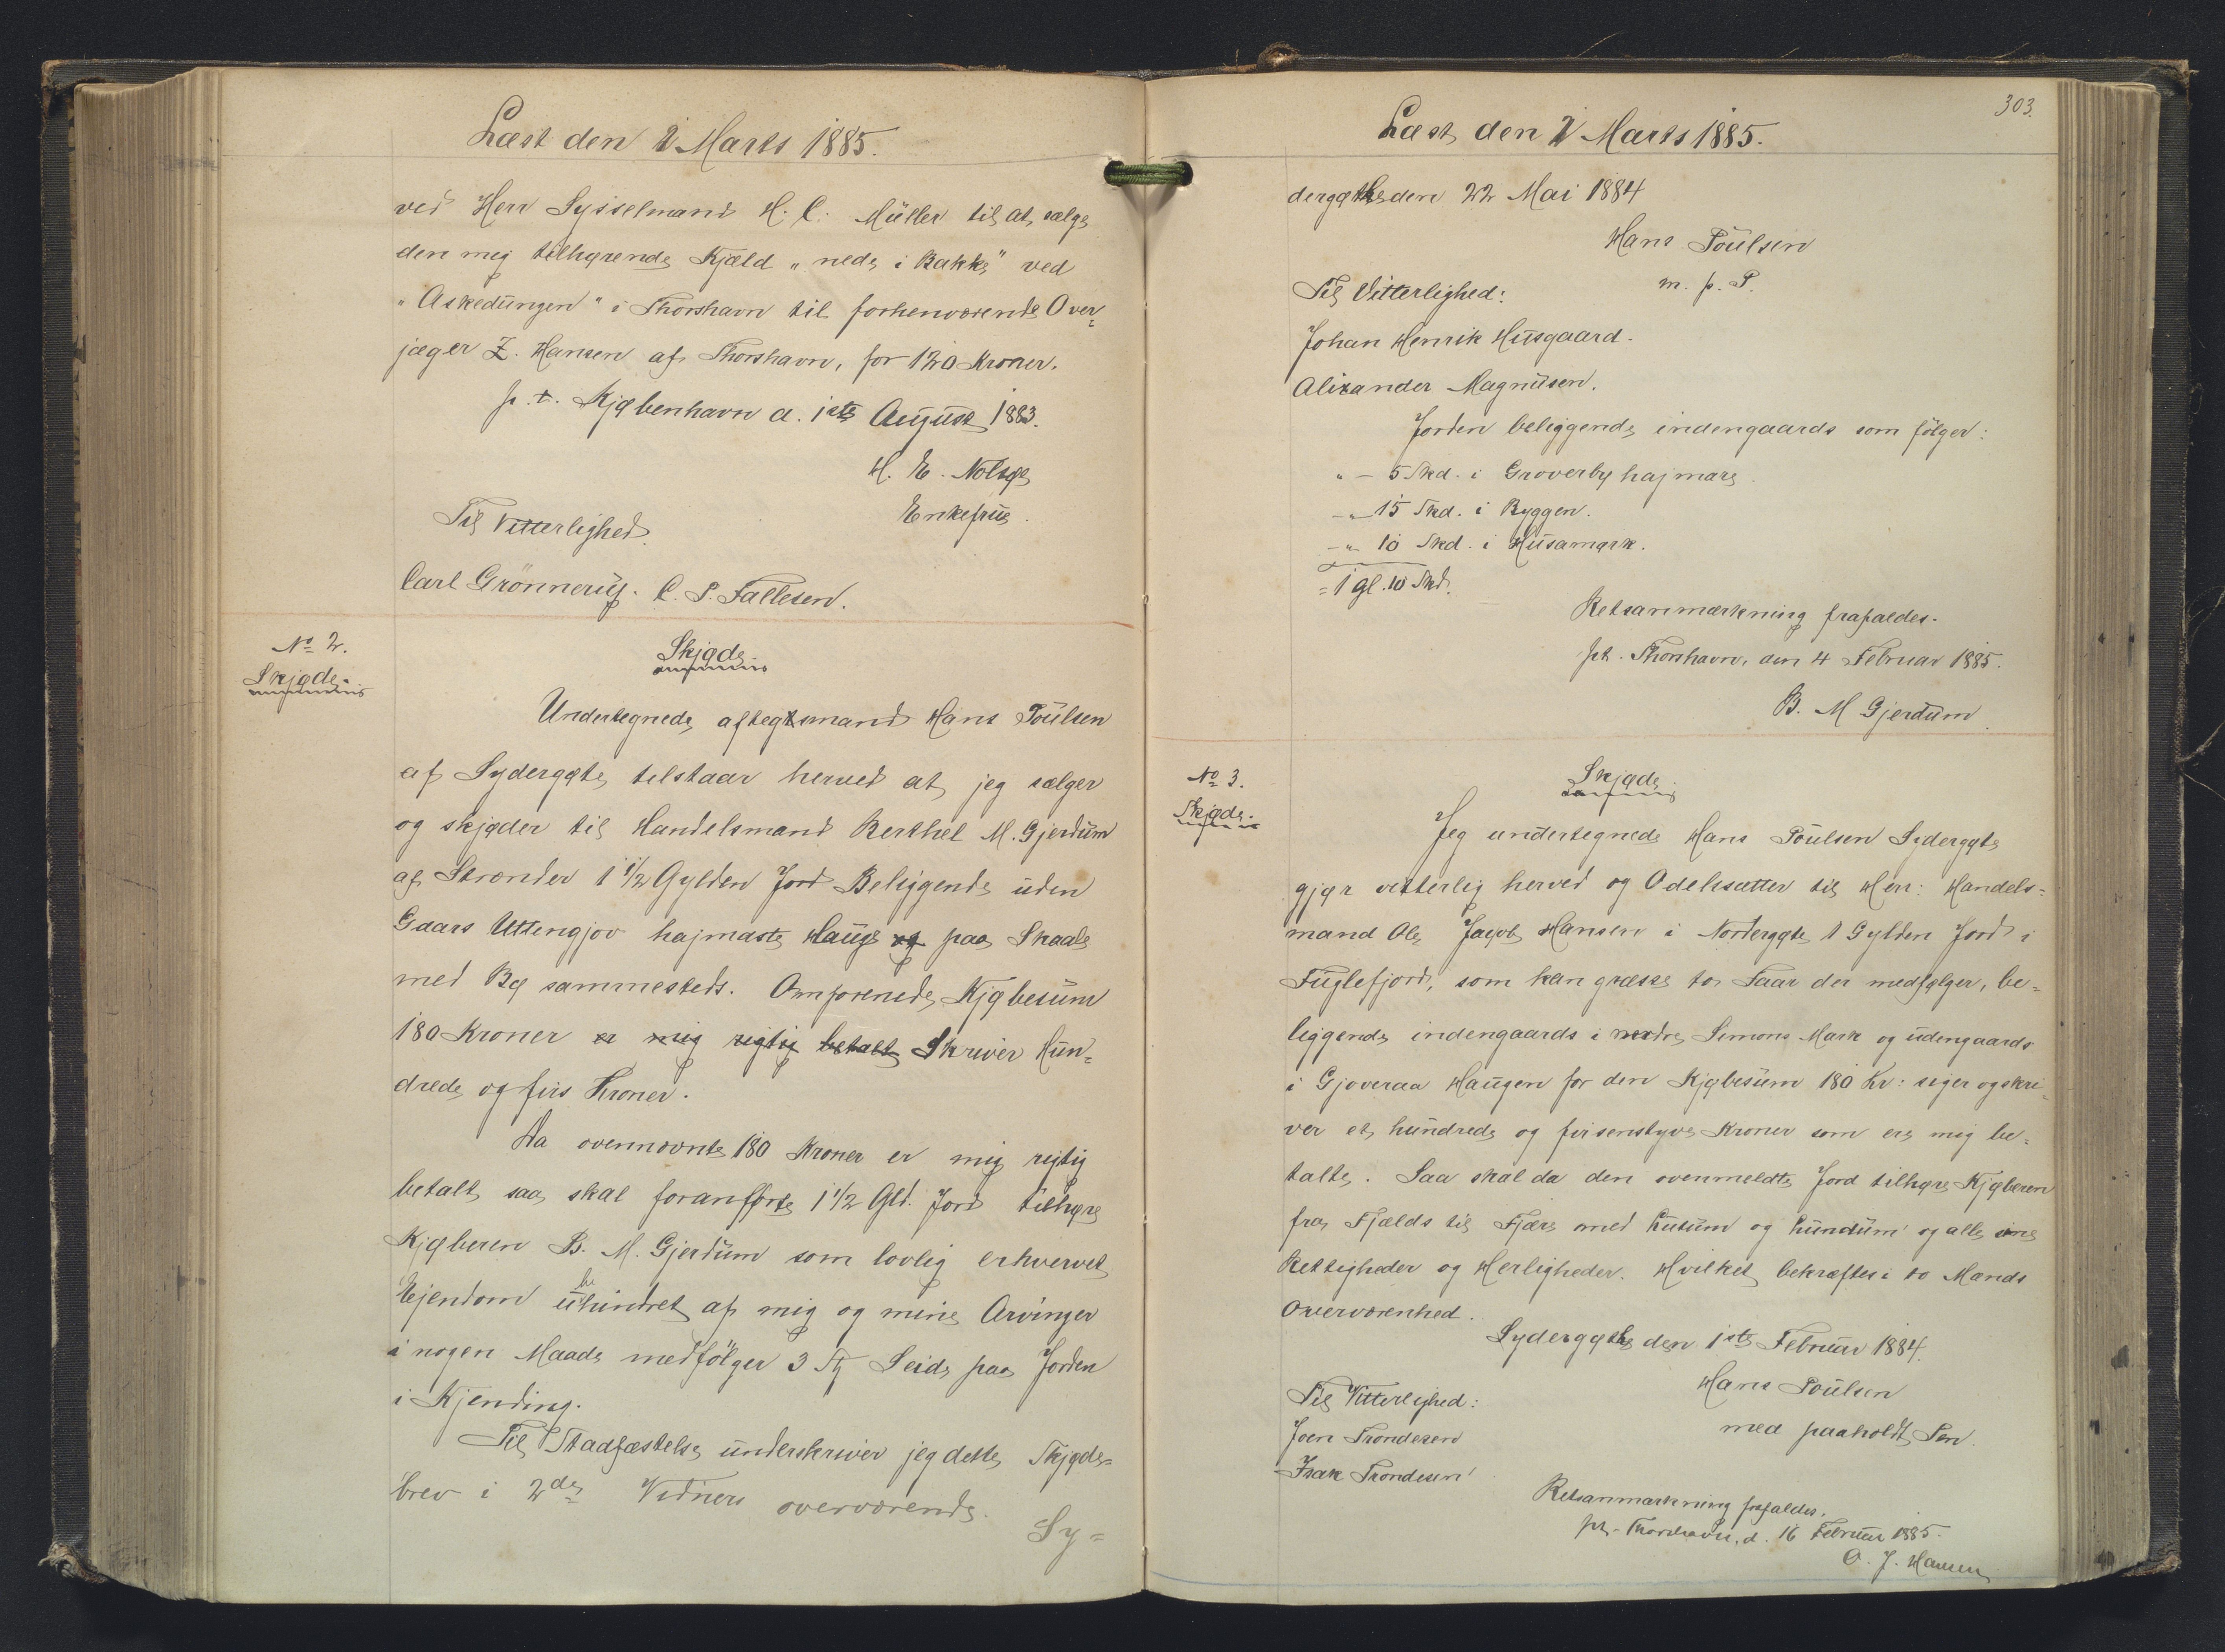 Læst den 2 Marts 1885.
ved Herr Sysselmand H. C. Müller til at sælge
den mig tilhørende Kjæld „nede i Bakke" ved
„Askedungen" i Thorshavn til forhenværende Over=
jæger Z. Hansen af Thorshavn, for 120 Kroner.
p. t. Kjøbenhavn d. 1ste August 1883.
H. E. Nolsøe
Enkefrue.
Til Vitterlighed.
Carl Grönnerup. C. P. Fallesen.
No 2.
Skjøde.
Skjøde.
Undertegnede aftegtsmand Hans Poulsen
af Sydergøte tilstaar herved at jeg sælger
og skjøder til Handelsmand Berthel M. Gjerdum
af Strender 1 1/2 Gylden Jord Beliggende uden
Gaars Uttengjov hajmaste Hauge og paa Skaale
med Bø sammesteds. Omforenede Kjøbesum
180 Kroner er mig rigtig betalt Skriver Hun=
drede og firs Kroner.
Da ovennævnte 180 Kroner er mig rigtig
betalt saa skal foranførte 1 1/2 Gld. Jord tilhøre
Kjøberen B. M. Gjerdum som lovlig erhvervet
Ejendom ubehindret af mig og mine Arvinger
i nogen Maade medfölger 3 St Seide paa Jorden
i Kjending.
Til Stadfæstelse underskriver jeg dette Skjøde=
brev i 2de Vidners overværende.
Sy=
303.
Læst den 2 Marts 1885.
dergøthe den 22 Mai 1884
Hans Poulsen
m. p. P.
Til Vitterlighed:
Johan Henrik Husgaard.
Alixander Magnusen.
Jorden beliggende indengaards som fölger:
„ — 5 Skd. i Groverby hajmare.
— „ 15 Skd. i Ryggen.
— „ 10 Skd. i Husamørk.
= 1 gl. 10 Skd.
Retsanmærkning frafaldes.
pt. Thorshavn, den 4 Februar 1885.
B. M Gjerdum.
No 3.
Skjøde.
Skjøde.
Jeg undertegnede Hans Poulsen Sydergøte
gjør vitterlig herved og Odelssætter til Herr: Handels=
mand Ole Jacob Hansen i Nordergøte 1 Gylden Jord i
Fuglefjord, som kan græsse to Faar der medfølger, be=
liggende indengaards i nordre Simons Mark og udengaards
i Gjoveraa Haugen for den Kjøbesum 180 Kr: siger og skri=
ver et hundrede og firsenstyve Kroner som ere mig be=
talte. Saa skal da den ovenmeldte Jord tilhøre Kjøberen
fra Fjælds til Fjære med lutum og lundum og alle sine
Rettigheder og Herligheder. Hvilket bekræftes i to Mænds
Overværenhed.
Sydergøthe den 1ste Februar 1884.
Hans Poulsen
med paaholdt Pen.
Til Vitterlighed:
Joen Trondesen
Isak Trondesen
Retsanmærkning frafaldes.
pt. Thorshavn, d. 16 Februar 1885.
O. J. Hansen